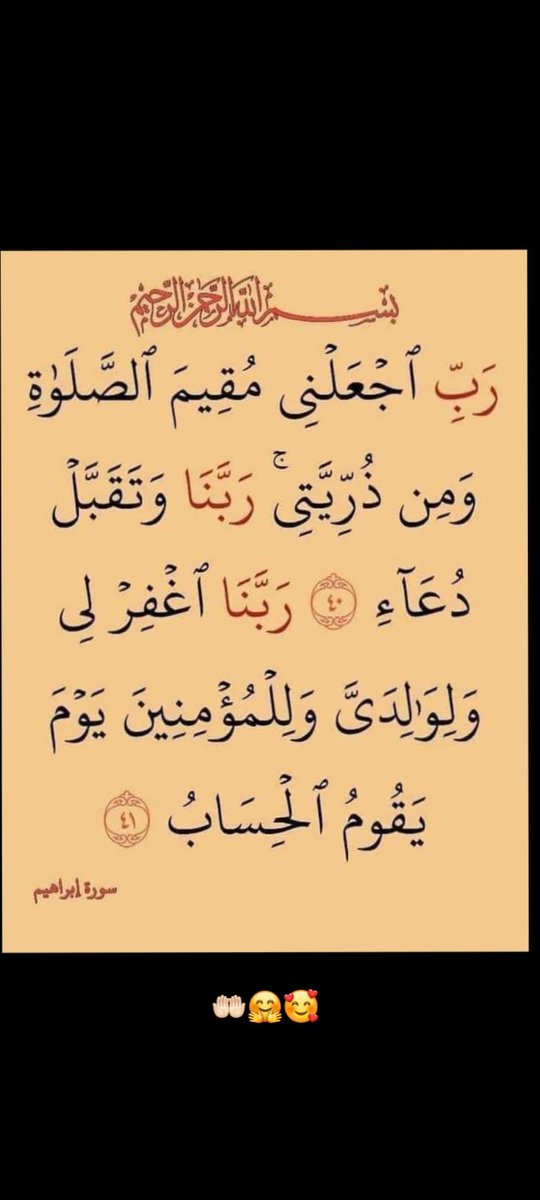 بسم الله الرحمن الرحيم
رَبِّ ٱجۡعَلۡنِى مُقِيمَ ٱلصَّلَوٰةِ
وَمِن ذُرِّيَّتِىۚ رَبَّنَا وَتَقَبَّلۡ
دُعَآءِ ٤٠ رَبَّنَا ٱغۡفِرۡ لِى
وَلِوَٰلِدَىَّ وَلِلۡمُؤۡمِنِينَ يَوۡمَ
يَقُومُ ٱلۡحِسَابُ ٤١
سورة إبراهيم
🤲🏻🤗🥰